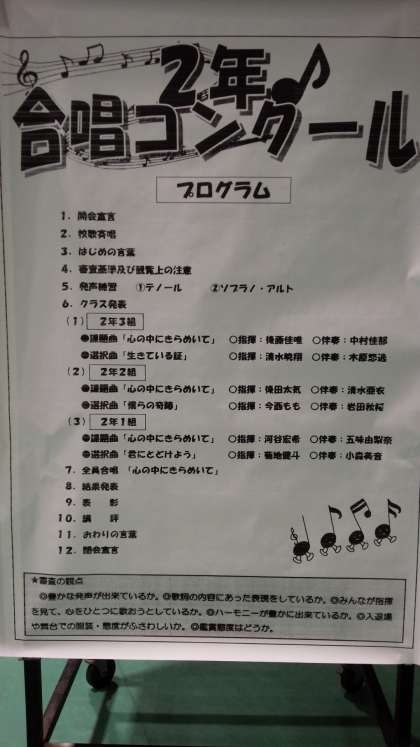 2年
合唱コンクール
プログラム
1. 開会宣言
2. 校歌斉唱
3. はじめの言葉
4. 審査基準及び観覧上の注意
5. 発声練習 ①テノール ②ソプラノ・アルト
6. クラス発表
(1) 2年3組
●課題曲「心の中にきらめいて」 ○指揮:後藤佳唯 ○伴奏:中村佳那
●選択曲「生きている証」 ○指揮:清水暁翔 ○伴奏:木原
(2) 2年2組
●課題曲「心の中にきらめいて」 ○指揮:後田太気 ○伴奏:清水亜衣
●選択曲「僕らの奇跡」 ○指揮:今西もも ○伴奏:岩田秋桜
(3) 2年1組
●課題曲「心の中にきらめいて」 ○指揮:河谷宏希 ○伴奏:五味由梨奈
●選択曲「君にとどけよう」 ○指揮:菊地健斗 ○伴奏:小森美音
7. 全員合唱 「心の中にきらめいて」
8. 結果発表
9. 表 彰
10. 講 評
11. おわりの言葉
12. 閉会宣言
★審査の観点
◎豊かな発声が出来ているか。◎歌詞の内容にあった表現をしているか。◎みんなが指揮
を見て、心をひとつに歌おうとしているか。◎ハーモニーが豊かに出来ているか。◎入退場
や舞台での服装・態度がふさわしいか。◎鑑賞態度はどうか。